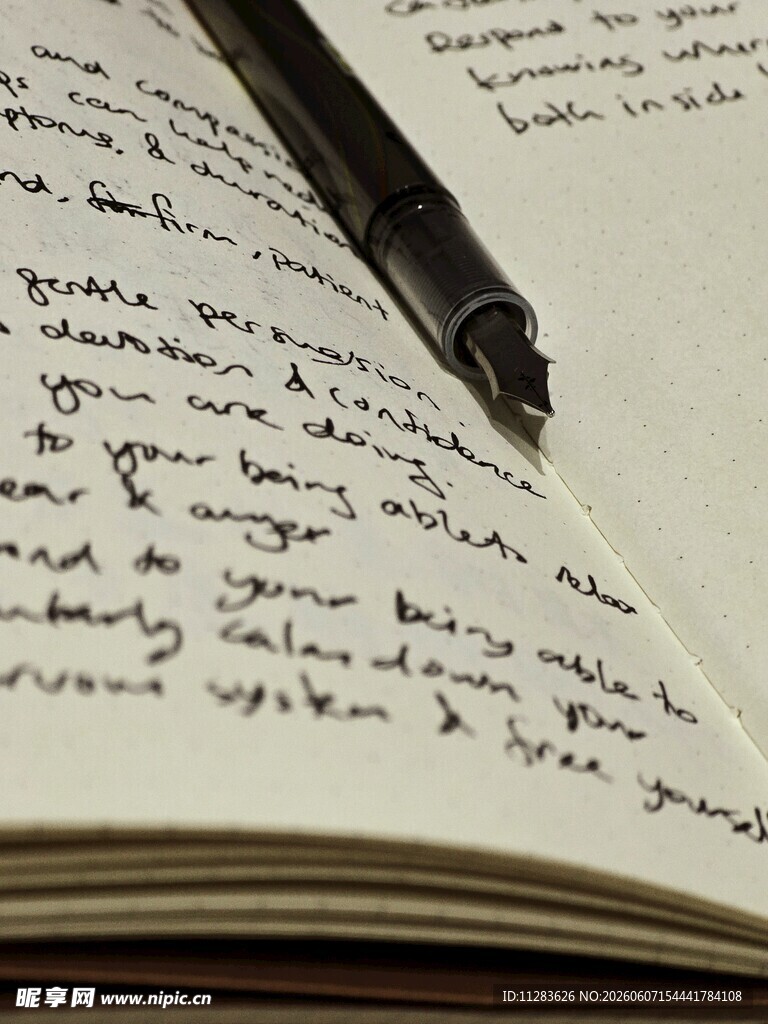 and compassion
can help red
& duration
firm, patient
gentle persuasion.
devotion & confidence
you are doing.
to your being able to relax
& anger
to your being able to
calm down your
system & free yourself
Respond to your
knowing where
both inside
昵享网 www.nipic.cn
ID:11283626 NO:20260607154441784108